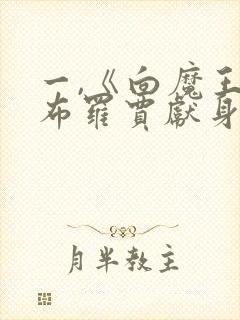 一,《向魔王
布羅賈獻身
月半教主